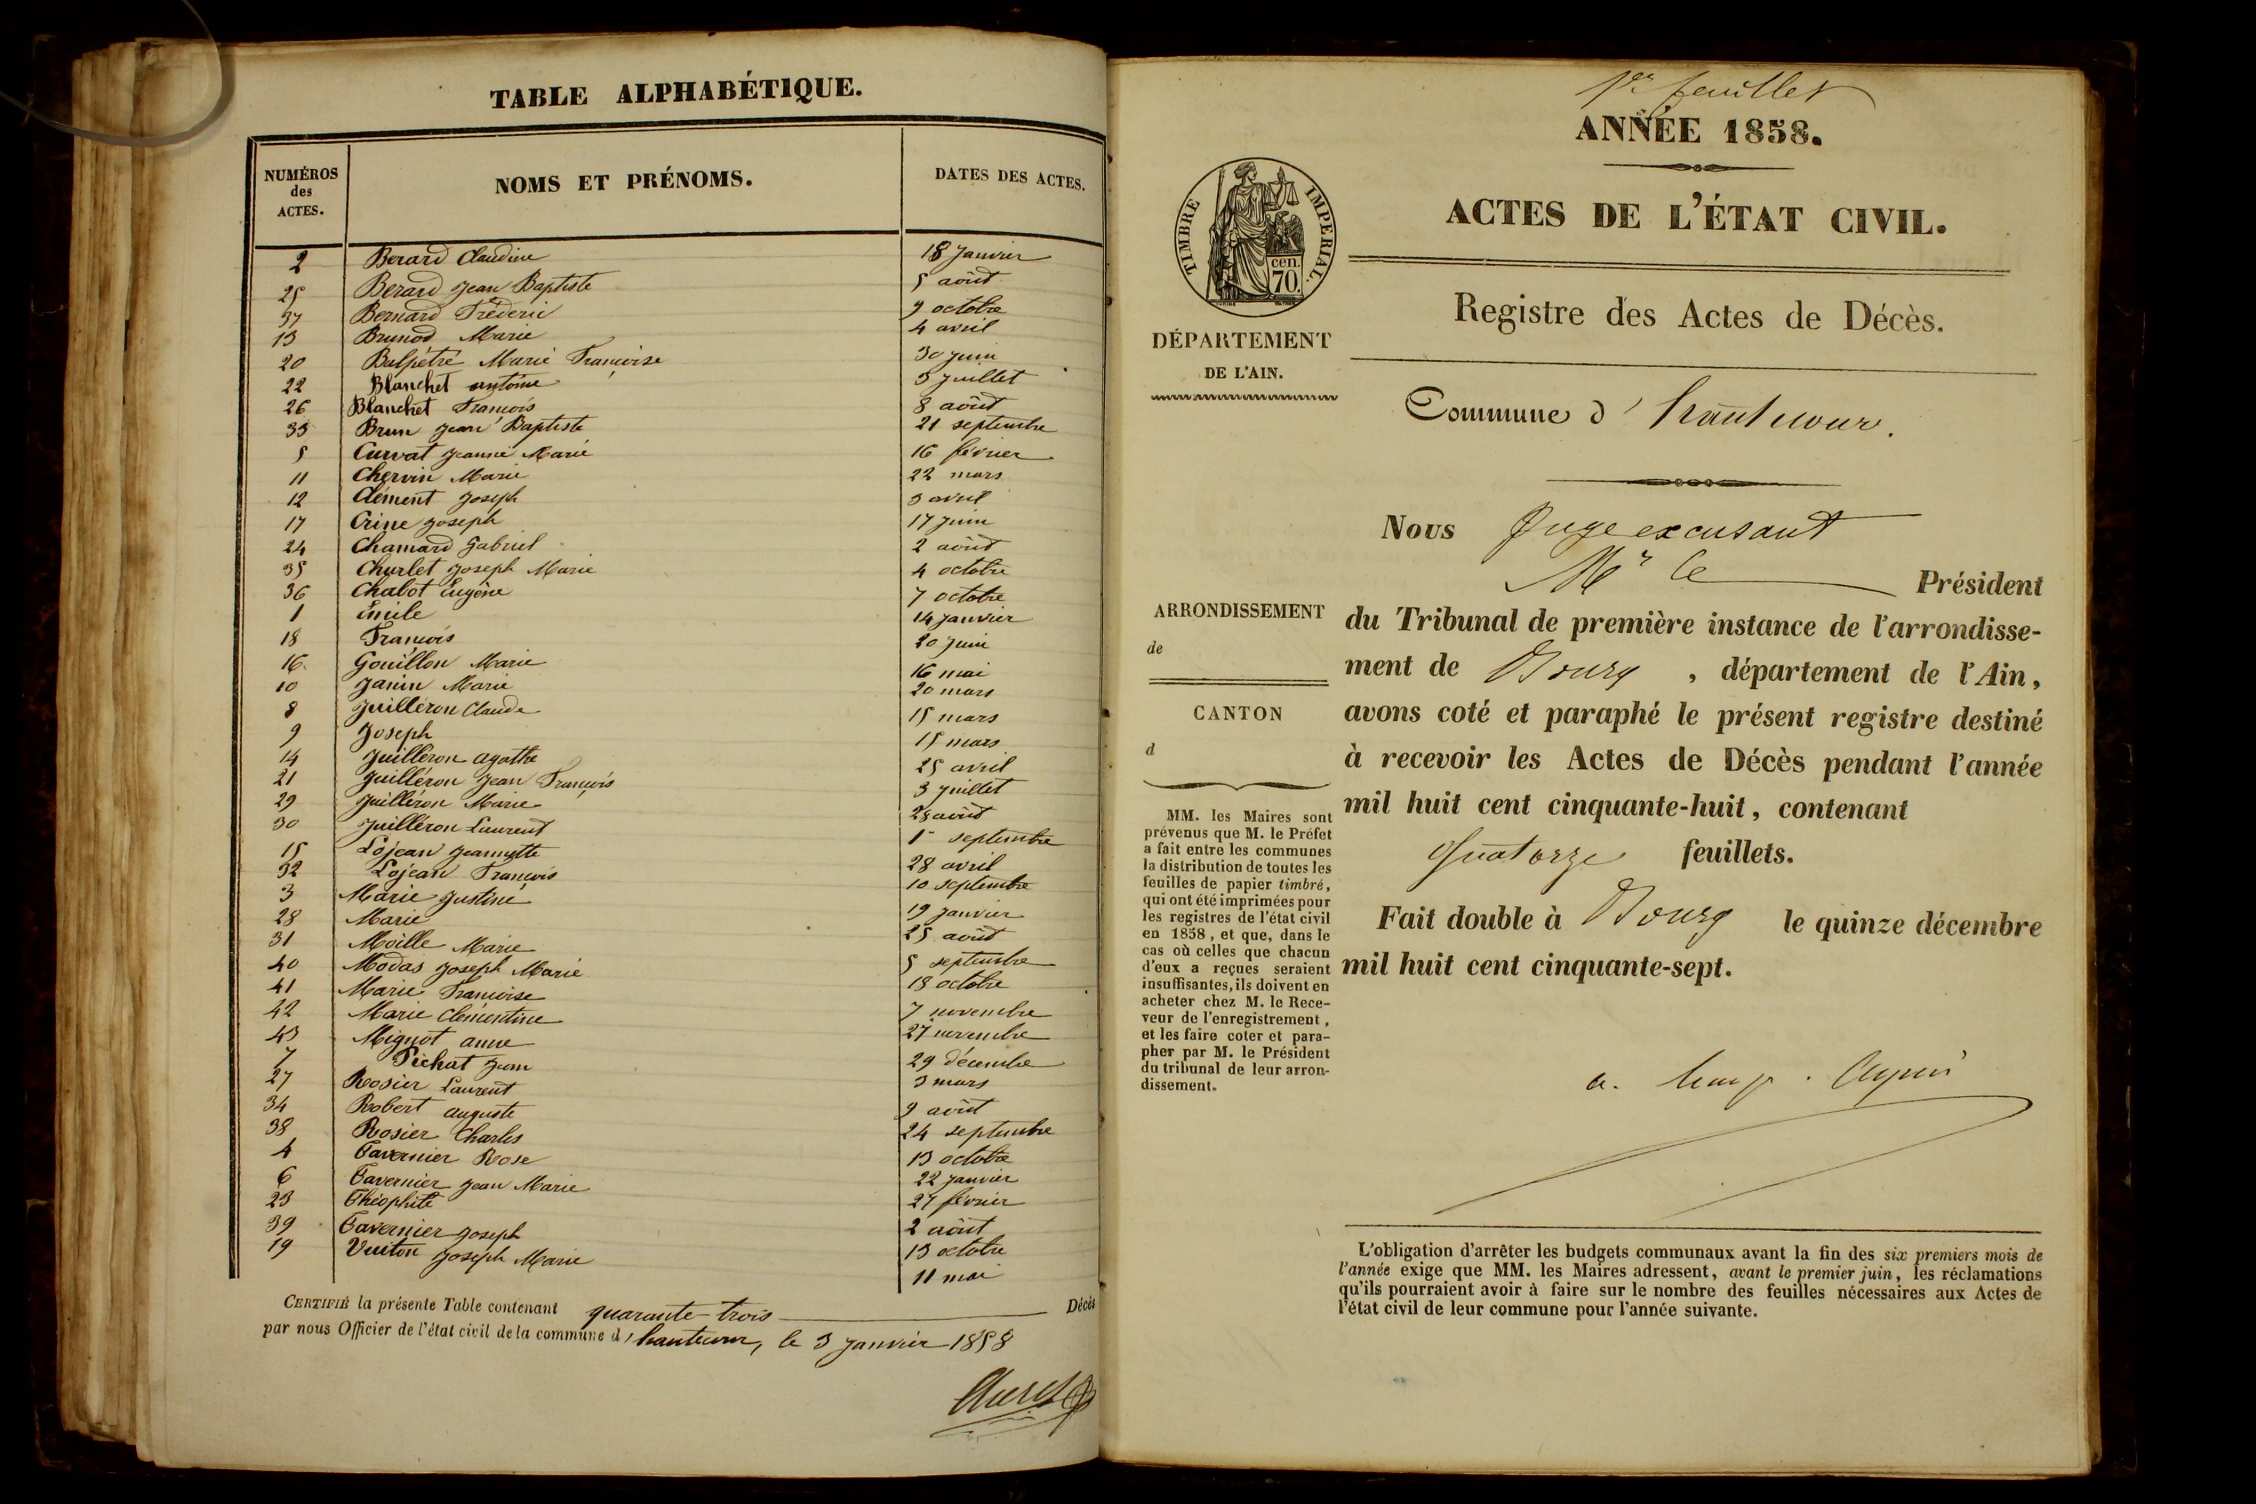 TABLE ALPHABÉTIQUE.
NUMÉROS des ACTES. NOMS ET PRÉNOMS. DATES DES ACTES.
2 Berard Claudine 18 janvier
25 Berard Jean Baptiste 5 août
37 Bernard Fréderic 9 octobre
13 Brunod Marie 4 avril
20 Balpétré Marie Françoise 30 juin
22 Blanchet antoine 5 juillet
26 Blanchet François 8 août
33 Brun Jean Baptiste 21 septembre
5 Curvat Jeanne Marie 16 février
11 Chervin Marie 22 mars
12 Clément Joseph 3 avril
17 Crine Joseph 17 juin
24 Chamard Gabriel 2 août
35 Charlet Joseph Marie 4 octobre
36 Chabot Eugène 7 octobre
1 Emile 14 janvier
18 François 20 juin
16 Gouillon Marie 16 mai
10 Janin Marie 20 mars
8 Juilléron Claude 15 mars
9 Joseph 15 mars
14 Juilléron agathe 25 avril
21 Juilléron Jean François 3 juillet
29 Juilléron Marie 28 août
30 Juilléron Laurent 1er septembre
15 Lojean Jeannette 28 avril
32 Lojean François 10 septembre
3 Marie Justine 19 janvier
28 Marie 25 août
31 Moille Marie 5 septembre
40 Modas Joseph Marie 18 octobre
41 Marie Françoise 7 novembre
42 Marie Clémentine 27 novembre
43 Mignot anne 29 décembre
7 Pichat Jean 3 mars
27 Rosier Laurent 9 août
34 Robert auguste 24 septembre
38 Rosier Charles 13 octobre
4 Tavernier Rose 22 janvier
6 Tavernier Jean Marie 27 février
23 Théophile 2 août
39 Tavernier Joseph 13 octobre
19 Vuiton Joseph Marie 11 mai
CERTIFIÉ la présente Table contenant quarante-trois Décès
par nous Officier de l'état civil de la commune d'hautecour, le 3 janvier 1858
1er feuillet
ANNÉE 1858.
TIMBRE IMPERIAL.
cen.
70.
ACTES DE L'ÉTAT CIVIL.
Registre des Actes de Décès.
DÉPARTEMENT
DE L'AIN.
Commune d'hautecour.
Nous Juge excusant
Mr le Président
du Tribunal de première instance de l'arrondisse-
ment de Bourg, département de l'Ain,
avons coté et paraphé le présent registre destiné
à recevoir les Actes de Décès pendant l'année
mil huit cent cinquante-huit, contenant
quatorze feuillets.
Fait double à Bourg le quinze décembre
mil huit cent cinquante-sept.
ARRONDISSEMENT
de
CANTON
d
MM. les Maires sont
prévenus que M. le Préfet
a fait entre les communes
la distribution de toutes les
feuilles de papier timbré,
qui ont été imprimées pour
les registres de l'état civil
en 1858, et que, dans le
cas où celles que chacun
d'eux a reçues seraient
insuffisantes, ils doivent en
acheter chez M. le Rece-
veur de l'enregistrement,
et les faire coter et para-
pher par M. le Président
du tribunal de leur arron-
dissement.
L'obligation d'arrêter les budgets communaux avant la fin des six premiers mois de
l'année exige que MM. les Maires adressent, avant le premier juin, les réclamations
qu'ils pourraient avoir à faire sur le nombre des feuilles nécessaires aux Actes de
l'état civil de leur commune pour l'année suivante.